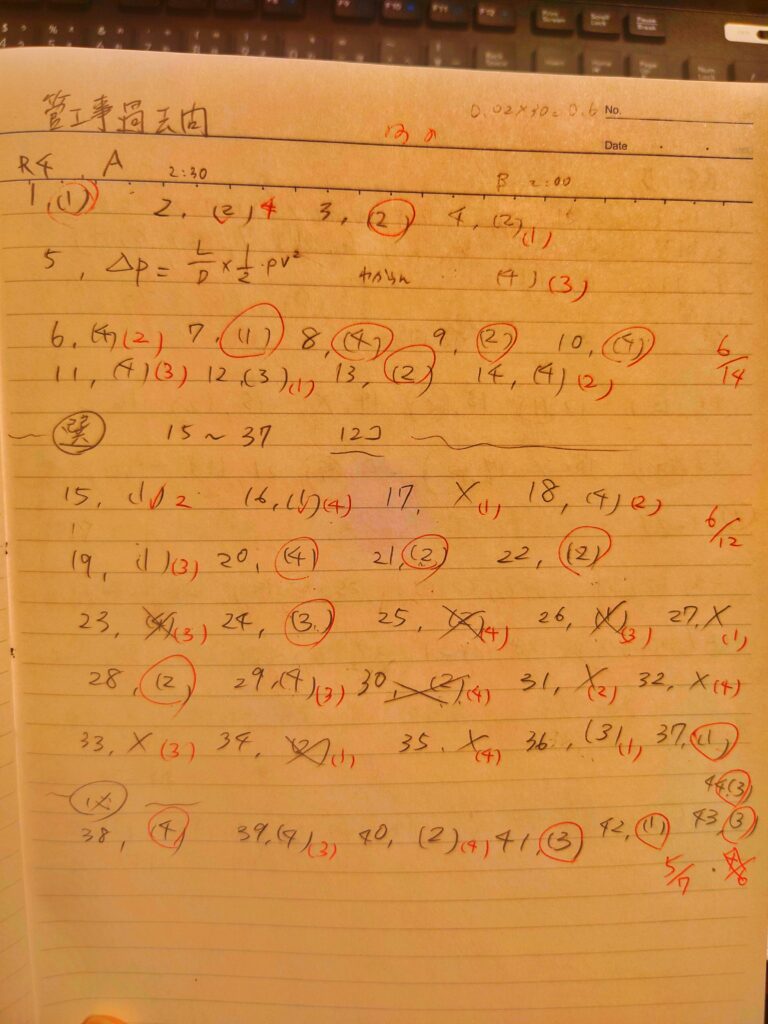 管工事過去問
0.02×30=0.6 No.
Date
R4, A 2:30 B 2:00
1, (1) 2, (2) 4 3, (2) 4, (2) (1)
5, Δp = L/D × 1/2 · ρv² わからん (4) (3)
6, (4) (2) 7, (1) 8, (4) 9, (2) 10, (4) 6/14
11, (4) (3) 12, (3) (1) 13, (2) 14, (4) (2)
選 15~37 12コ
15, (1) 2 16, (1) (4) 17, X (1) 18, (4) (2) 6/12
19, (1) (3) 20, (4) 21, (2) 22, (2)
23, (4) (3) 24, (3) 25, (2) (4) 26, (1) (3) 27, X (1)
28, (2) 29, (4) (3) 30, (2) (4) 31, X (2) 32, X (4)
33, X (3) 34, (2) (1) 35, X (4) 36, (3) (1) 37, (1)
必
38, (4) 39, (4) (3) 40, (2) (4) 41, (3) 42, (1) 43, (3) 44, (3)
5/7